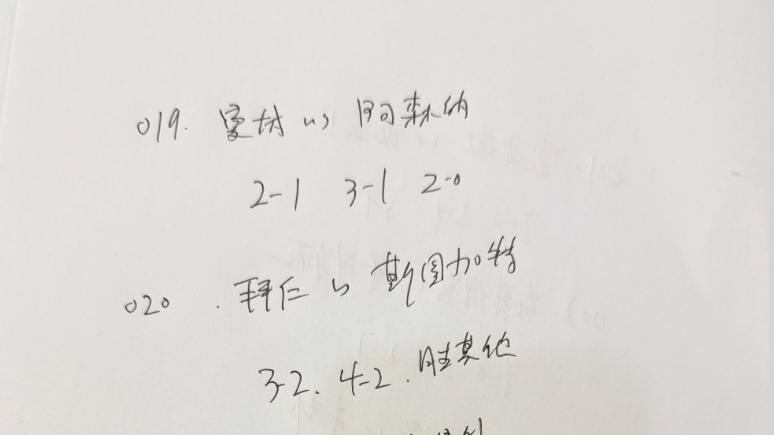 019. 曼城 vs 阿森纳
2-1 3-1 2-0
020. 拜仁 vs 斯图加特
3-2. 4-2. 胜其他